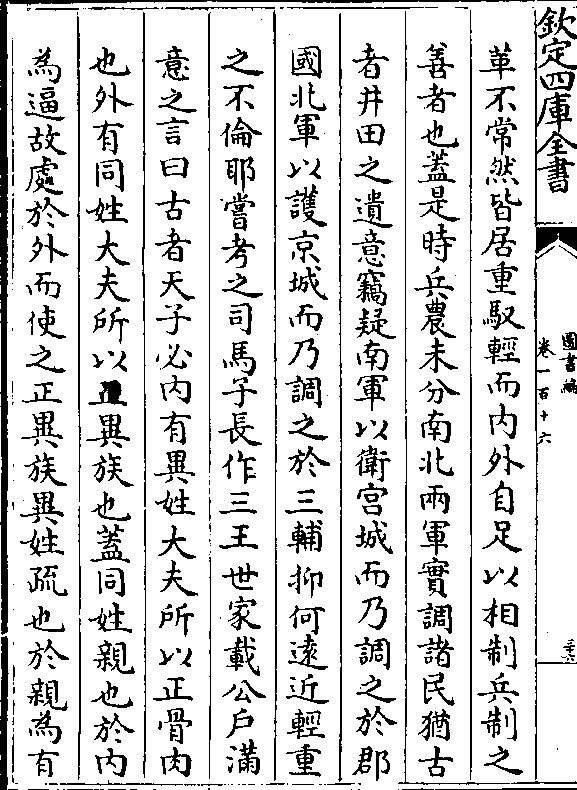 欽定四庫全書
圖書編
卷一百十六
革不常然皆居重馭輕而内外自足以相制兵制之
善者也蓋是時兵農未分南北兩軍實調諸民猶古
者井田之遺意竊疑南軍以衛宫城而乃調之於郡
國北軍以護京城而乃調之於三輔抑何逺近輕重
之不倫耶嘗考之司馬子長作三王世家載公戶滿
意之言曰古者天子必内有異姓大夫所以正骨肉
也外有同姓大夫所以正異族也蓋同姓親也於内
為逼故處於外而使之正異族異姓疏也於親為有